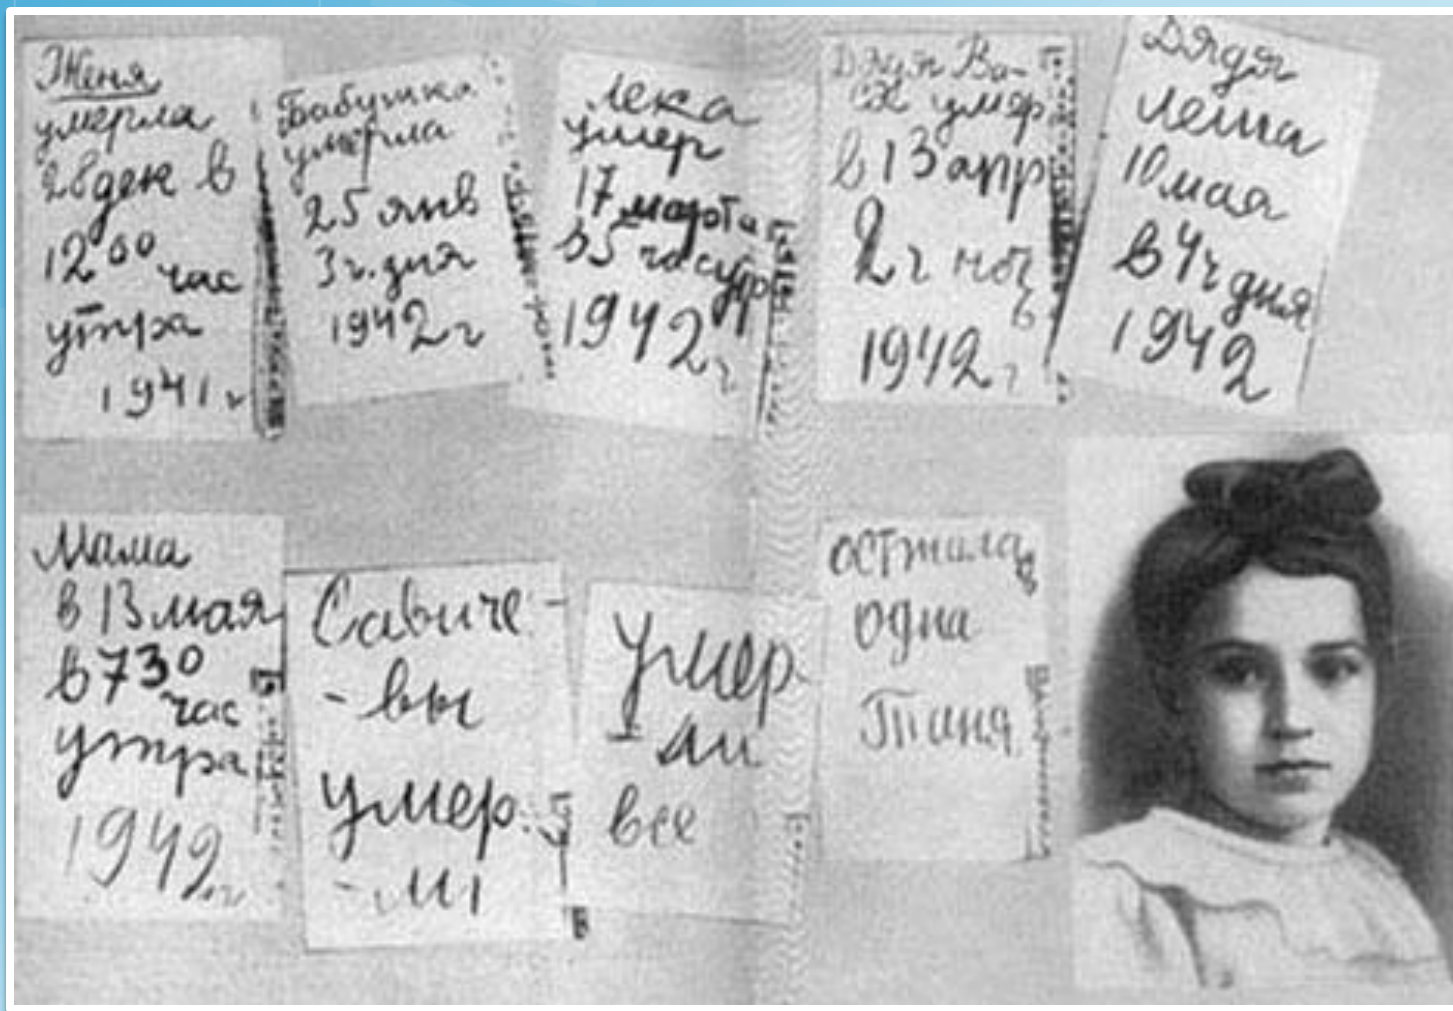 Женя
умерла
28 дек в
12 00 час
утра
1941 г
Бабушка
умерла
25 янв
3 ч. дня
1942 г
Лека
умер
17 марта
в 5 час утр
1942 г
Дядя Ва-
ся умер
в 13 апр
2 ч ноч
ь
1942 г
Дядя
Леша
10 мая
в 4 ч дня
1942
Мама
в 13 мая
в 7 30
час
утра
1942 г
Савиче-
-вы
умер
-ли
Умер
-ли
все
осталась
одна
Таня